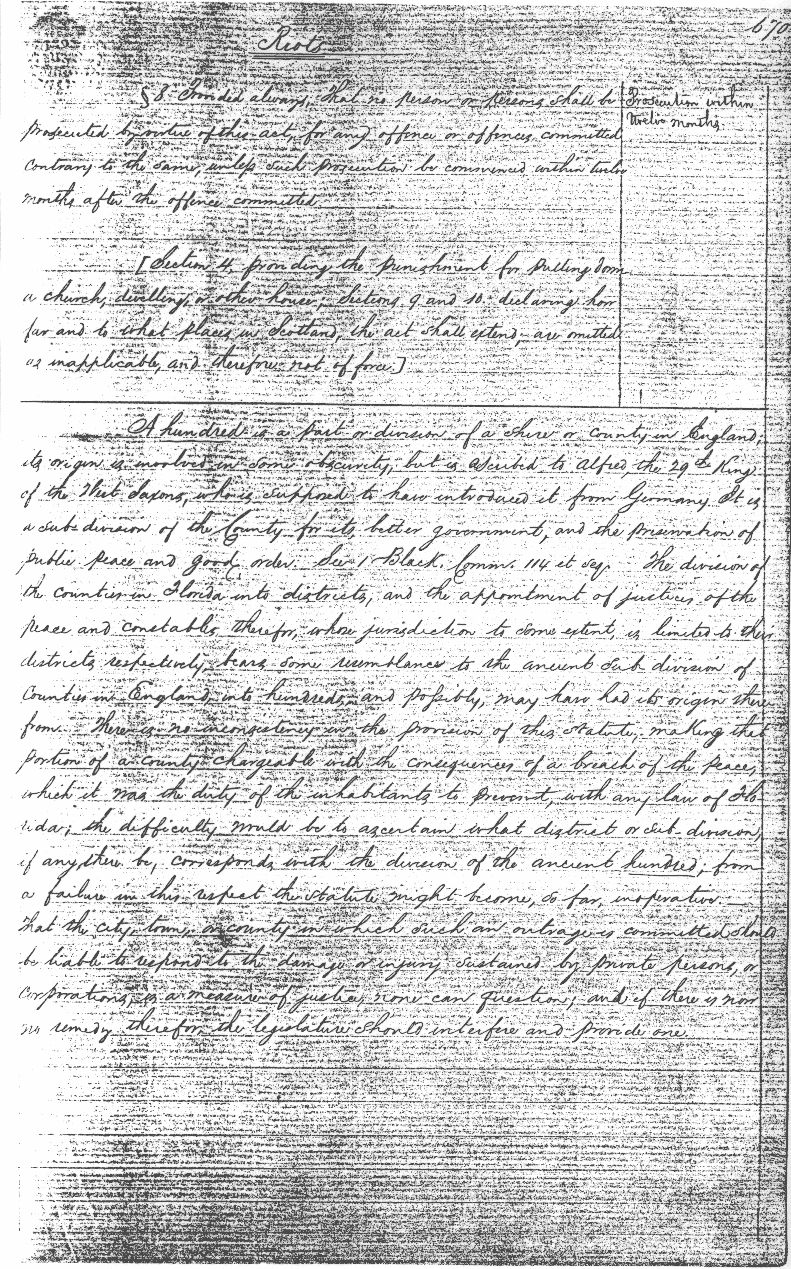 670
Riots
§ 8. Provided always, That no person or persons shall be
prosecuted by virtue of this act, for any offence or offences committed
contrary to the same, unless such prosecution be commenced within twelve
months after the offence committed.
Prosecution within
twelve months.
[Section 4, providing the punishment for pulling down
a church, dwelling, or other house; Sections 9 and 10. declaring how
far and to what places in Scotland, the act shall extend; are omitted
as inapplicable, and therefore not of force.]
A hundred is a part or division of a shire or county in England,
its origin is involved in some obscurity, but is ascribed to Alfred, the 29th King
of the West Saxons, who is supposed to have introduced it from Germany. It is
a sub-division of the County for its better government, and the preservation of
public peace and good order. See 1 Black. Comm. 114 et seq. The division of
the counties in Florida into districts, and the appointment of justices of the
peace and constables therefor, whose jurisdiction to some extent, is limited to their
districts respectively, bears some resemblance to the ancient sub division of
Counties in England, into hundreds, and possibly, may have had its origin there
from. There is no inconsistency in the provision of this statute, making that
portion of a county chargeable with the consequences of a breach of the peace,
which it was the duty of the inhabitants to prevent, with any law of Flo-
rida; the difficulty would be to ascertain what district or sub-division,
if any there be, corresponds with the division of the ancient hundred; from
a failure in this respect the statute might become, so far, inoperative.
That the city, town, or county in which such an outrage is committed should
be liable to respond to the damage or injury sustained by private persons, or
corporations, is a measure of justice, none can question; and if there is now
no remedy therefor, the legislature should interfere and provide one.